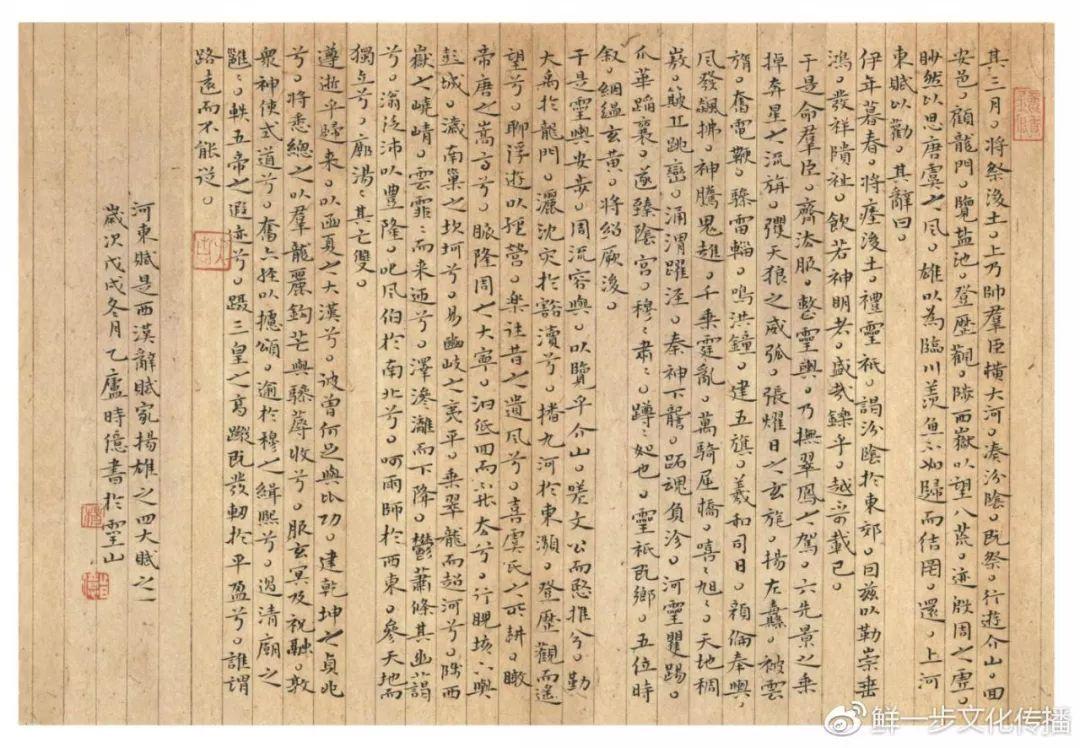 其三月。将祭後土。上乃帥羣臣橫大河。湊汾陰。既祭。行遊介山。回
安邑。顧龍門。覽盐池。登歷觀。陟西嶽以望八荒。迹殷周之虛。
眇然以思唐虞之風。雄以為臨川羨魚不如歸而结罔。還。上河
東賦以勸。其辭曰。
伊年暮春。将瘞後土。禮靈祇。謁汾陰於東郊。因茲以勒崇垂
鴻。發祥隤祉。飲若神明者。盛哉鑠乎。越不可載已。
于是命羣臣。齊法服。整靈輿。乃撫翠鳳之駕。六先景之乘
掉奔星之流旃。彏天狼之威弧。張耀日之玄旄。揚左纛。被雲
旓。奮電鞭。驂雷輜。鳴洪鐘。建五旗。羲和司日。顏倫奉輿。
風發飆拂。神騰鬼趡。千乘霆亂。萬騎屈橋。嘻〻旭〻。天地稠
㟼。簸丘跳巒。涌渭躍涇。秦神下讋。跖魂負沴。河靈矍踢。
爪華蹈襄。遂臻陰宮。穆〻肅〻。蹲〻如也。靈祇既鄉。五位時
叙。絪縕玄黃。将紹厥後。
于是靈輿安步。周流容與。以覽乎介山。嗟文公而愍推兮。勤
大禹於龍門。灑沈災於豁瀆兮。播九河於東瀕。登歷觀而遙
望兮。聊浮遊以經營。樂往昔之遺風兮。喜虞氏之所耕。瞰
帝唐之嵩高兮。眽隆周之大寧。汩低回而不能去兮。行睨垓下與
彭城。濊南巢之坎坷兮。易豳岐之夷平。乘翠龍而超河兮。陟西
嶽之嶢崝。雲霏〻而来迎兮。澤滲灕而下降。鬱蕭條其幽藹
兮。滃泛沛以豐隆。叱風伯於南北兮。呵雨師於西東。參天地而
獨立兮。廓湯〻其亡雙。
遵逝乎歸来。以函夏之大漢兮。彼曾何足與比功。建乾坤之貞兆
兮。将悉總之以羣龍。麗鈎芒與驂蓐收兮。服玄冥及祝融。敦
衆神使式道兮。奮六經以攄頌。逾於穆之緝熙兮。過清廟之
雝〻。軼五帝之遐迹兮。躡三皇之高蹤。既發軔於平盈兮。誰謂
路遠而不能從。
河東賦是西漢辭賦家揚雄之四大賦之一
歲次戊戌冬月乙廬時億書於靈山
鲜一步文化传播